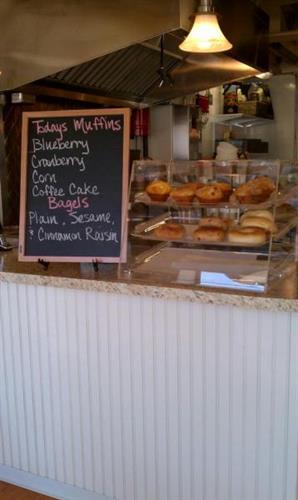 Todays Muffins
Blueberry
Cranberry
Corn
Coffee Cake
Bagels
Plain, Sesame,
* Cinnamon Raisin